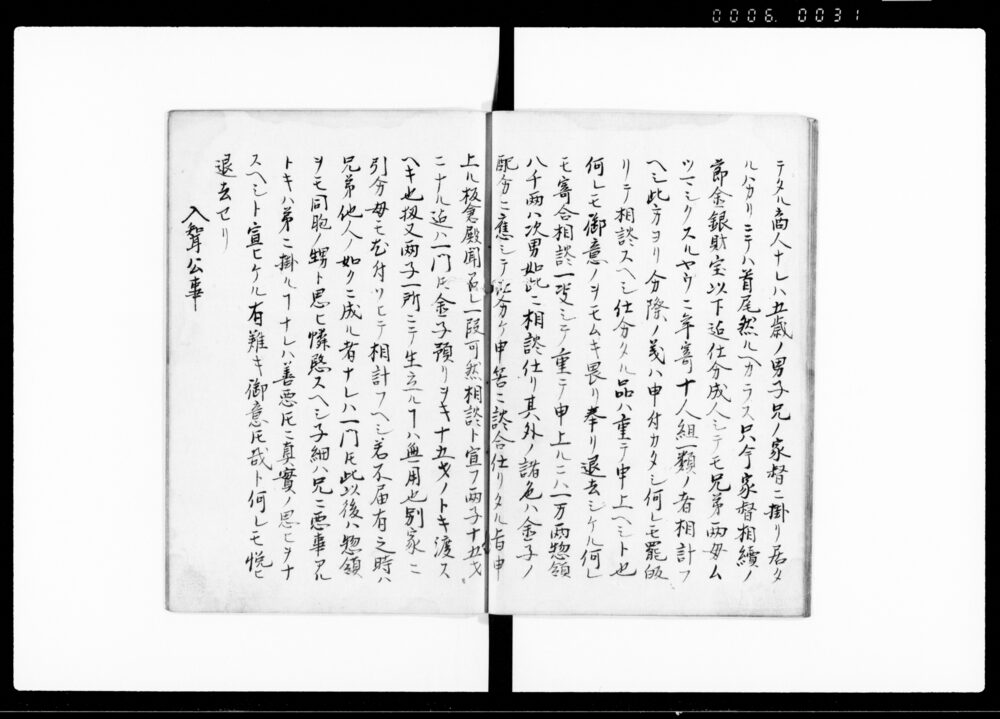 0006.0031
テタル商人ナレハ五歳ノ男子兄ノ家督ニ掛リ居タ
ルハカリニテハ首尾然ルヘカラス只今家督相續ノ
節金銀財宝以下迠仕分成人シテモ兄弟両母ム
ツマシクスルヤウニ年寄十人組一類ノ者相計フ
ヘシ此方ヨリ分際ノ義ハ申付カタシ何レモ罷皈
リテ相談スヘシ仕分タル品ハ重テ申上ヘシト也
何レモ御意ノヲモムキ畏リ奉リ退去シケル何レ
モ寄合相談一段シテ重テ申上ルニハ一万両惣領
八千両ハ次男如此ニ相談仕リ其外ノ諸色ハ金子ノ
配分ニ應シテ仕分ケ申筈ニ談合仕リタル旨申
上ル板倉殿聞召シ一段可然相談ト宣フ両子十五才
ニナル迠ハ一門𪜈金子預リヲキ十五才ノトキ渡ス
ヘキ也扨又両子一所ニテ生立ルヿハ無用也別家ニ
引分母モ右付ツヒテ相計フヘシ若不届有之時ハ
兄弟他人ノ如クニ成ル者ナレハ一門𪜈此以後ハ惣領
ヲモ同胞ノ甥ト思ヒ憐愍スヘシ子細ハ兄ニ悪事アル
トキハ弟ニ掛ルヿナレハ善悪𪜈ニ真實ノ思ヒヲナ
スヘシト宣ヒケル有難キ御意𪜈哉ト何レモ悦ヒ
退去セリ
入聟公事